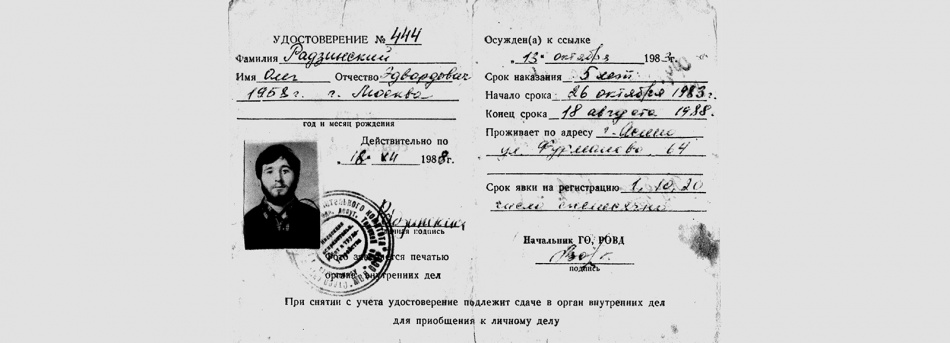 УДОСТОВЕРЕНИЕ № 444
Фамилия Радзинский
Имя Олег Отчество Эдвардович
1958 г. г. Москва
год и месяц рождения
Действительно по
18 XII 1988г.
личная подпись
Фото заверяется печатью
органа внутренних дел
Осужден(а) к ссылке
13 октября 1983г.
Срок наказания 5 лет
Начало срока 26 октября 1983г.
Конец срока 18 августа 1988.
Проживает по адресу г. Асино
ул. Фурманова, 64
Срок явки на регистрацию 1, 10, 20
числа
Начальник ГО, РОВД
подпись
При снятии с учета удостоверение подлежит сдаче в орган внутренних дел
для приобщения к личному делу